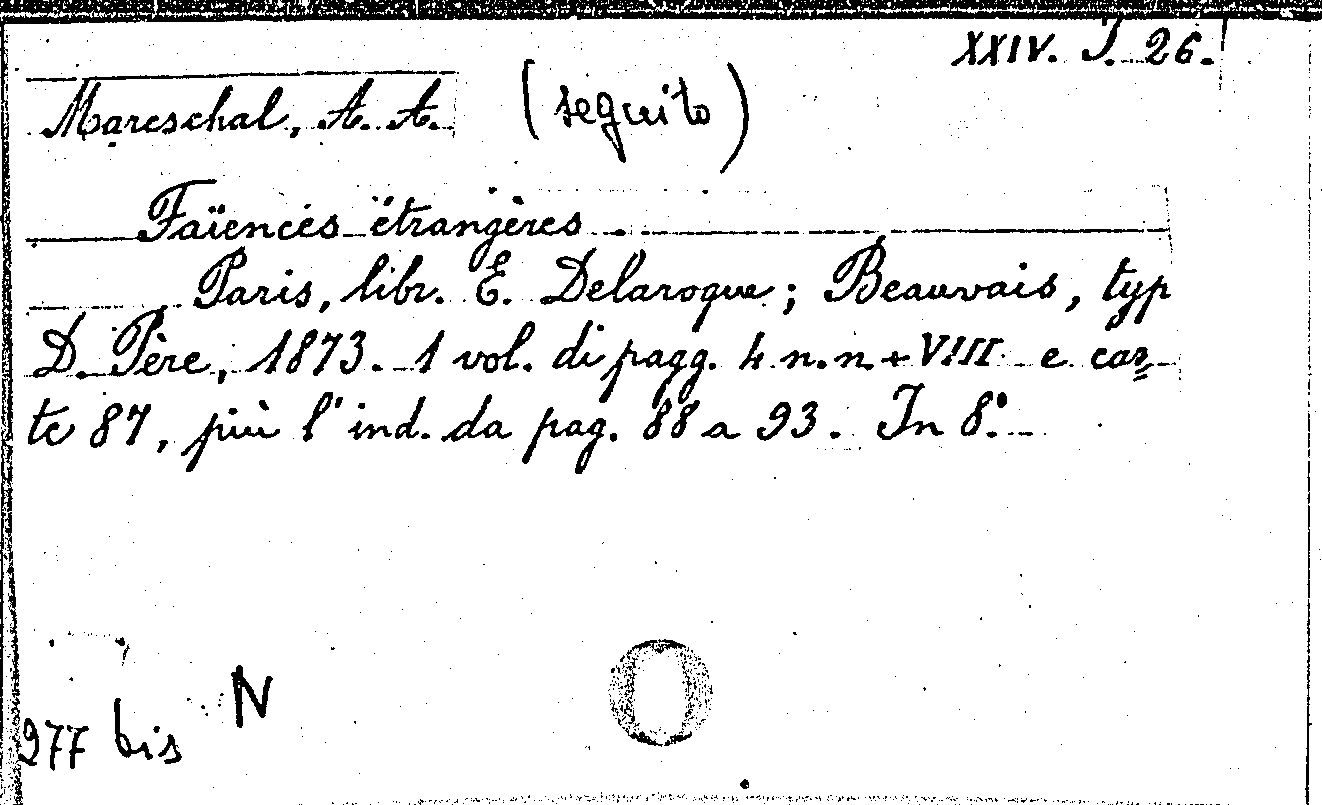 XXIV. J. 26.
Mareschal, A. A. (seguito)
Faïences étrangères.
Paris, libr. E. Delaroque; Beauvais, typ
D. Père, 1873. 1 vol. di pagg. 4 n.n. + VIII e car=
te 87, più l'ind. da pag. 88 a 93. In 8.°
N
977 bis